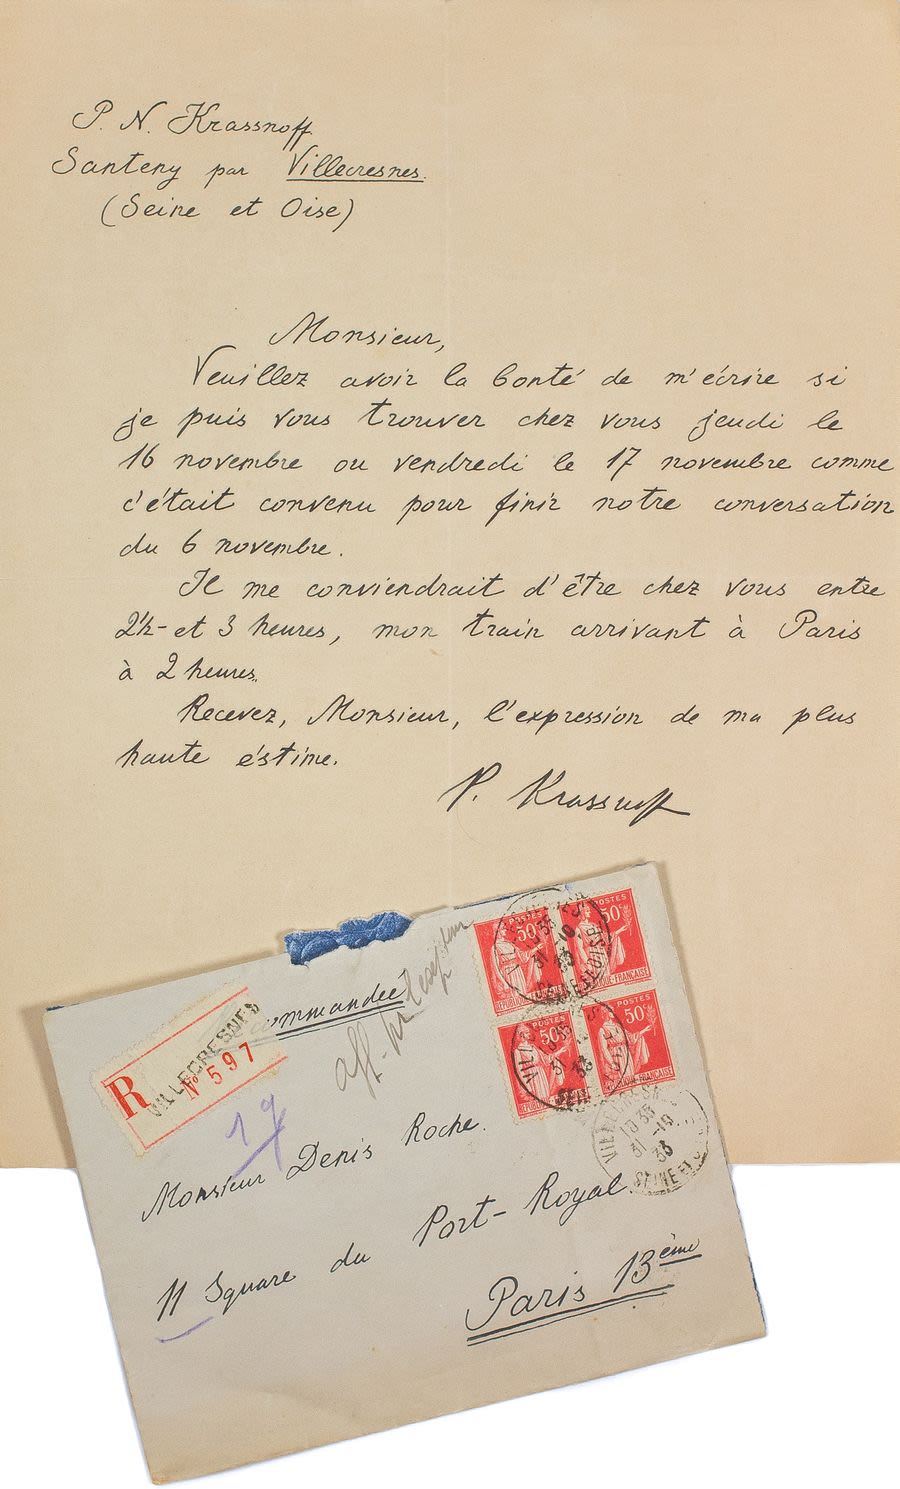 P. N. Krassnoff
Santeny par Villecresnes.
(Seine et Oise)
Monsieur,
Veuillez avoir la bonté de m'écrire si
je puis vous trouver chez vous jeudi le
16 novembre ou vendredi le 17 novembre comme
c'était convenu pour finir notre conversation
du 6 novembre.
Il me conviendrait d'être chez vous entre
2½ - et 3 heures, mon train arrivant à Paris
à 2 heures.
Recevez, Monsieur, l'expression de ma plus
haute éstime.
P. Krassnoff
commandée
R VILLECRESNES
N° 597
19
POSTES 50c
POSTES 50c
RÉPUBLIQUE FRANÇAISE
POSTES 50c
POSTES 50c
VILLECRESNES
18 35
31 -10
33
SEINE ET OISE
Monsieur Denis Roche.
11 Square du Port-Royal.
Paris 13ème